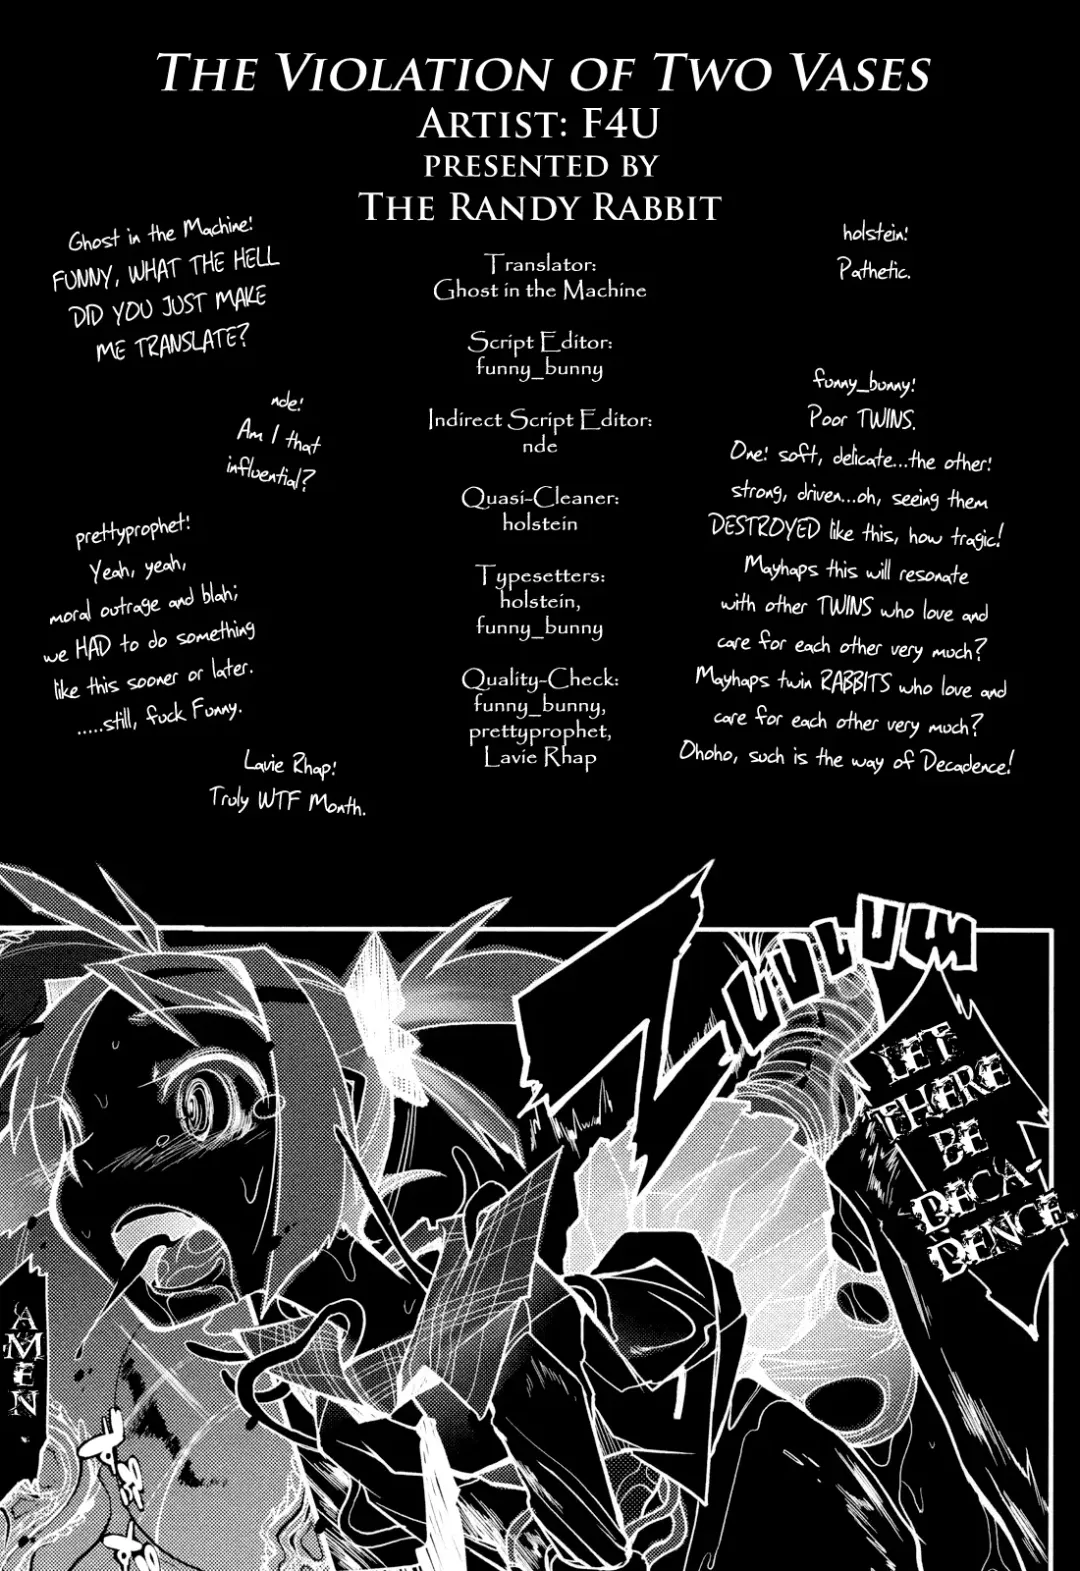 The Violation of Two Vases
Artist: F4U
presented by
The Randy Rabbit
Ghost in the Machine:
FUNNY, WHAT THE HELL
DID YOU JUST MAKE
ME TRANSLATE?
nde:
Am I that
influential?
prettyprophet:
Yeah, yeah,
moral outrage and blah;
we HAD to do something
like this sooner or later.
.....still, fuck Funny.
Lavie Rhap:
Truly WTF Month.
Translator:
Ghost in the Machine
Script Editor:
funny_bunny
Indirect Script Editor:
nde
Quasi-Cleaner:
holstein
Typesetters:
holstein,
funny_bunny
Quality-Check:
funny_bunny,
prettyprophet,
Lavie Rhap
holstein:
Pathetic.
funny_bunny:
Poor TWINS.
One: soft, delicate...the other:
strong, driven...oh, seeing them
DESTROYED like this, how tragic!
Mayhaps this will resonate
with other TWINS who love and
care for each other very much?
Mayhaps twin RABBITS who love and
care for each other very much?
Ohoho, such is the way of Decadence!
LET
THERE
BE
DECA-
DENCE
AMEN